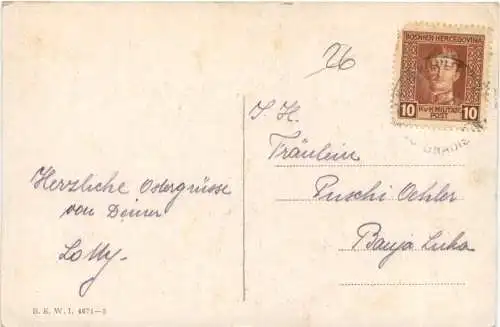 26
BOSNIEN HERCEGOVINA
10 K.u.K. MILITÄR 10
POST
GRADIS
I. H.
Fräulein
Puschi Oehler
Banja Luka
Herzliche Ostergrüsse
von Deiner
Lolly.
B. K. W. I. 4671-3